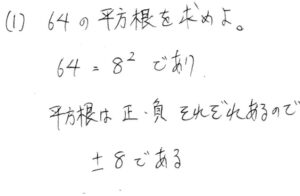 (1) 64の平方根を求めよ。
64 = 8² であり
平方根は 正・負 それぞれあるので
±8である